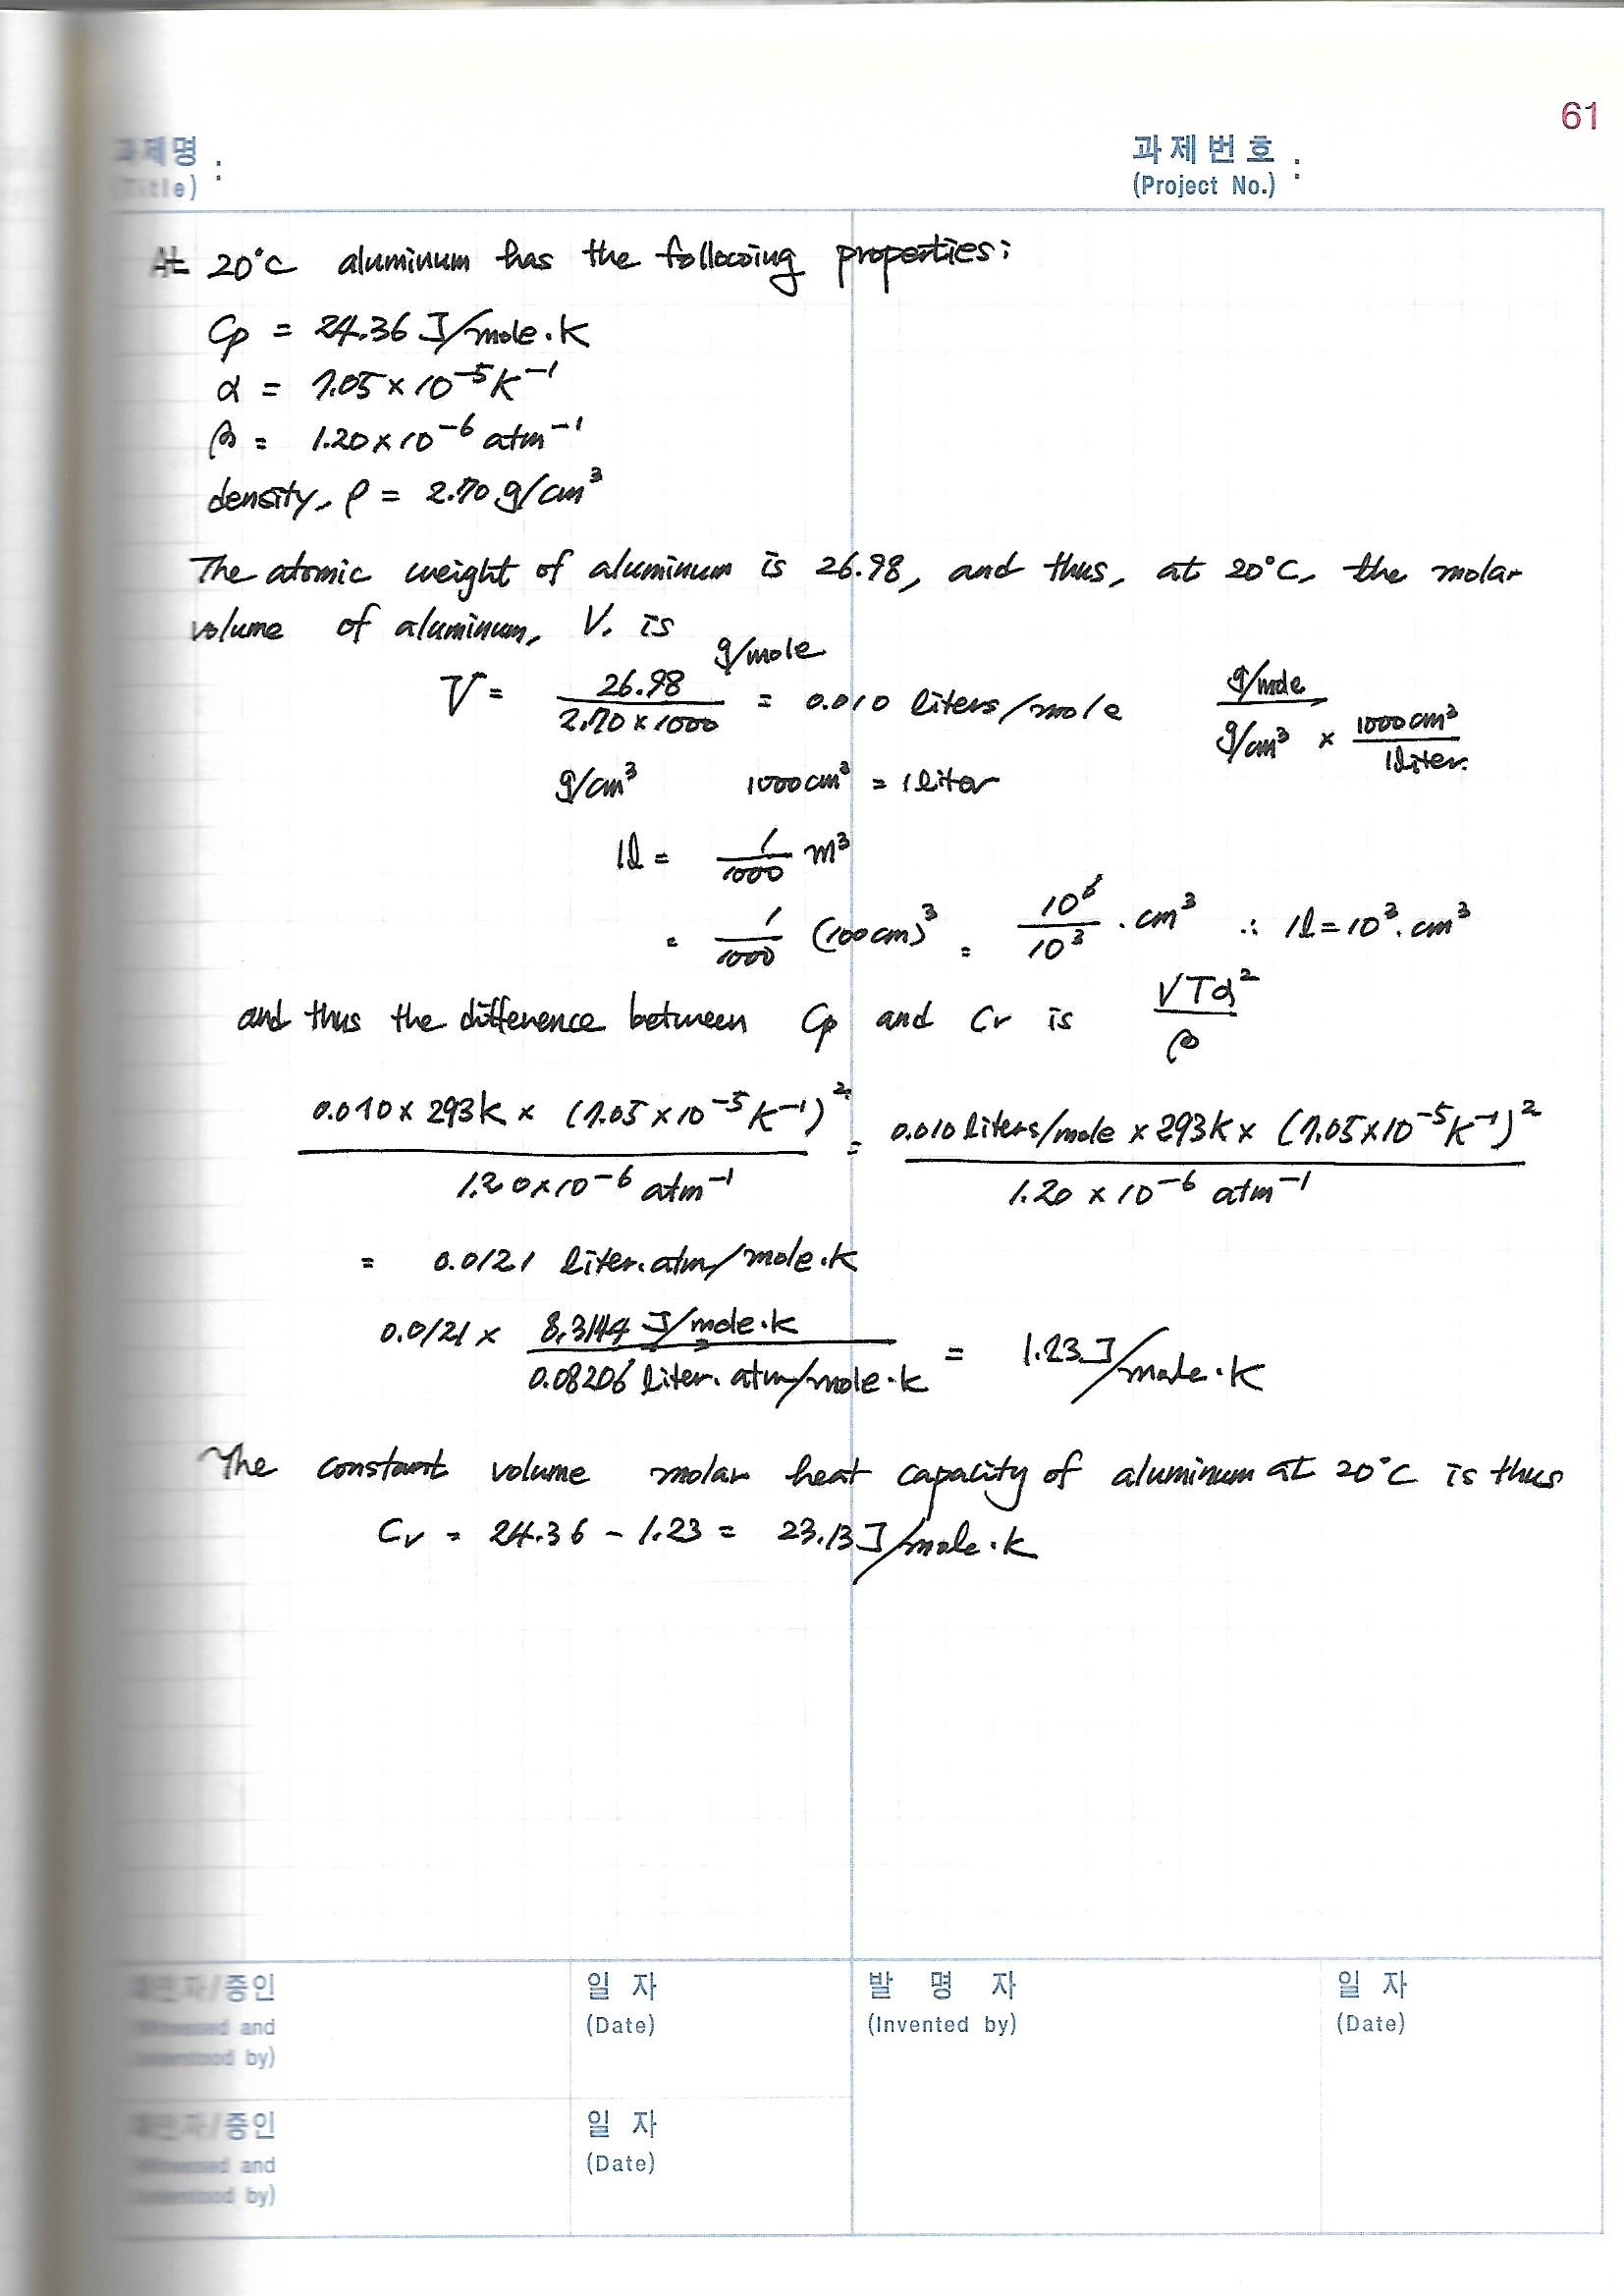 61
과제명 :
(Title)
과제번호 :
(Project No.)
At 20°C aluminum has the following properties:
Cp = 24.36 J/mole·K
α = 7.05 × 10⁻⁵ K⁻¹
β = 1.20 × 10⁻⁶ atm⁻¹
density, ρ = 2.70 g/cm³
The atomic weight of aluminum is 26.98, and thus, at 20°C, the molar
volume of aluminum, V. is
V = 26.98 g/mole / 2.70 × 1000 = 0.010 liters/mole g/mole / g/cm³ × 1000 cm³ / 1 liter.
g/cm³ 1000 cm³ = 1 liter
1l = 1/1000 m³
= 1/1000 (100 cm)³ = 10⁶/10³ · cm³ ∴ 1l = 10³ · cm³
and thus the difference between Cp and Cv is VTα²/β
0.010 × 293K × (7.05 × 10⁻⁵ K⁻¹)² / 1.20 × 10⁻⁶ atm⁻¹ = 0.010 liters/mole × 293K × (7.05 × 10⁻⁵ K⁻¹)² / 1.20 × 10⁻⁶ atm⁻¹
= 0.0121 liter·atm/mole·K
0.0121 × 8.3144 J/mole·K / 0.08206 liter·atm/mole·K = 1.23 J/mole·K
The constant volume molar heat capacity of aluminum at 20°C is thus
Cv = 24.36 - 1.23 = 23.13 J/mole·K
/증인
and
by)
일 자
(Date)
발 명 자
(Invented by)
일 자
(Date)
/증인
and
by)
일 자
(Date)